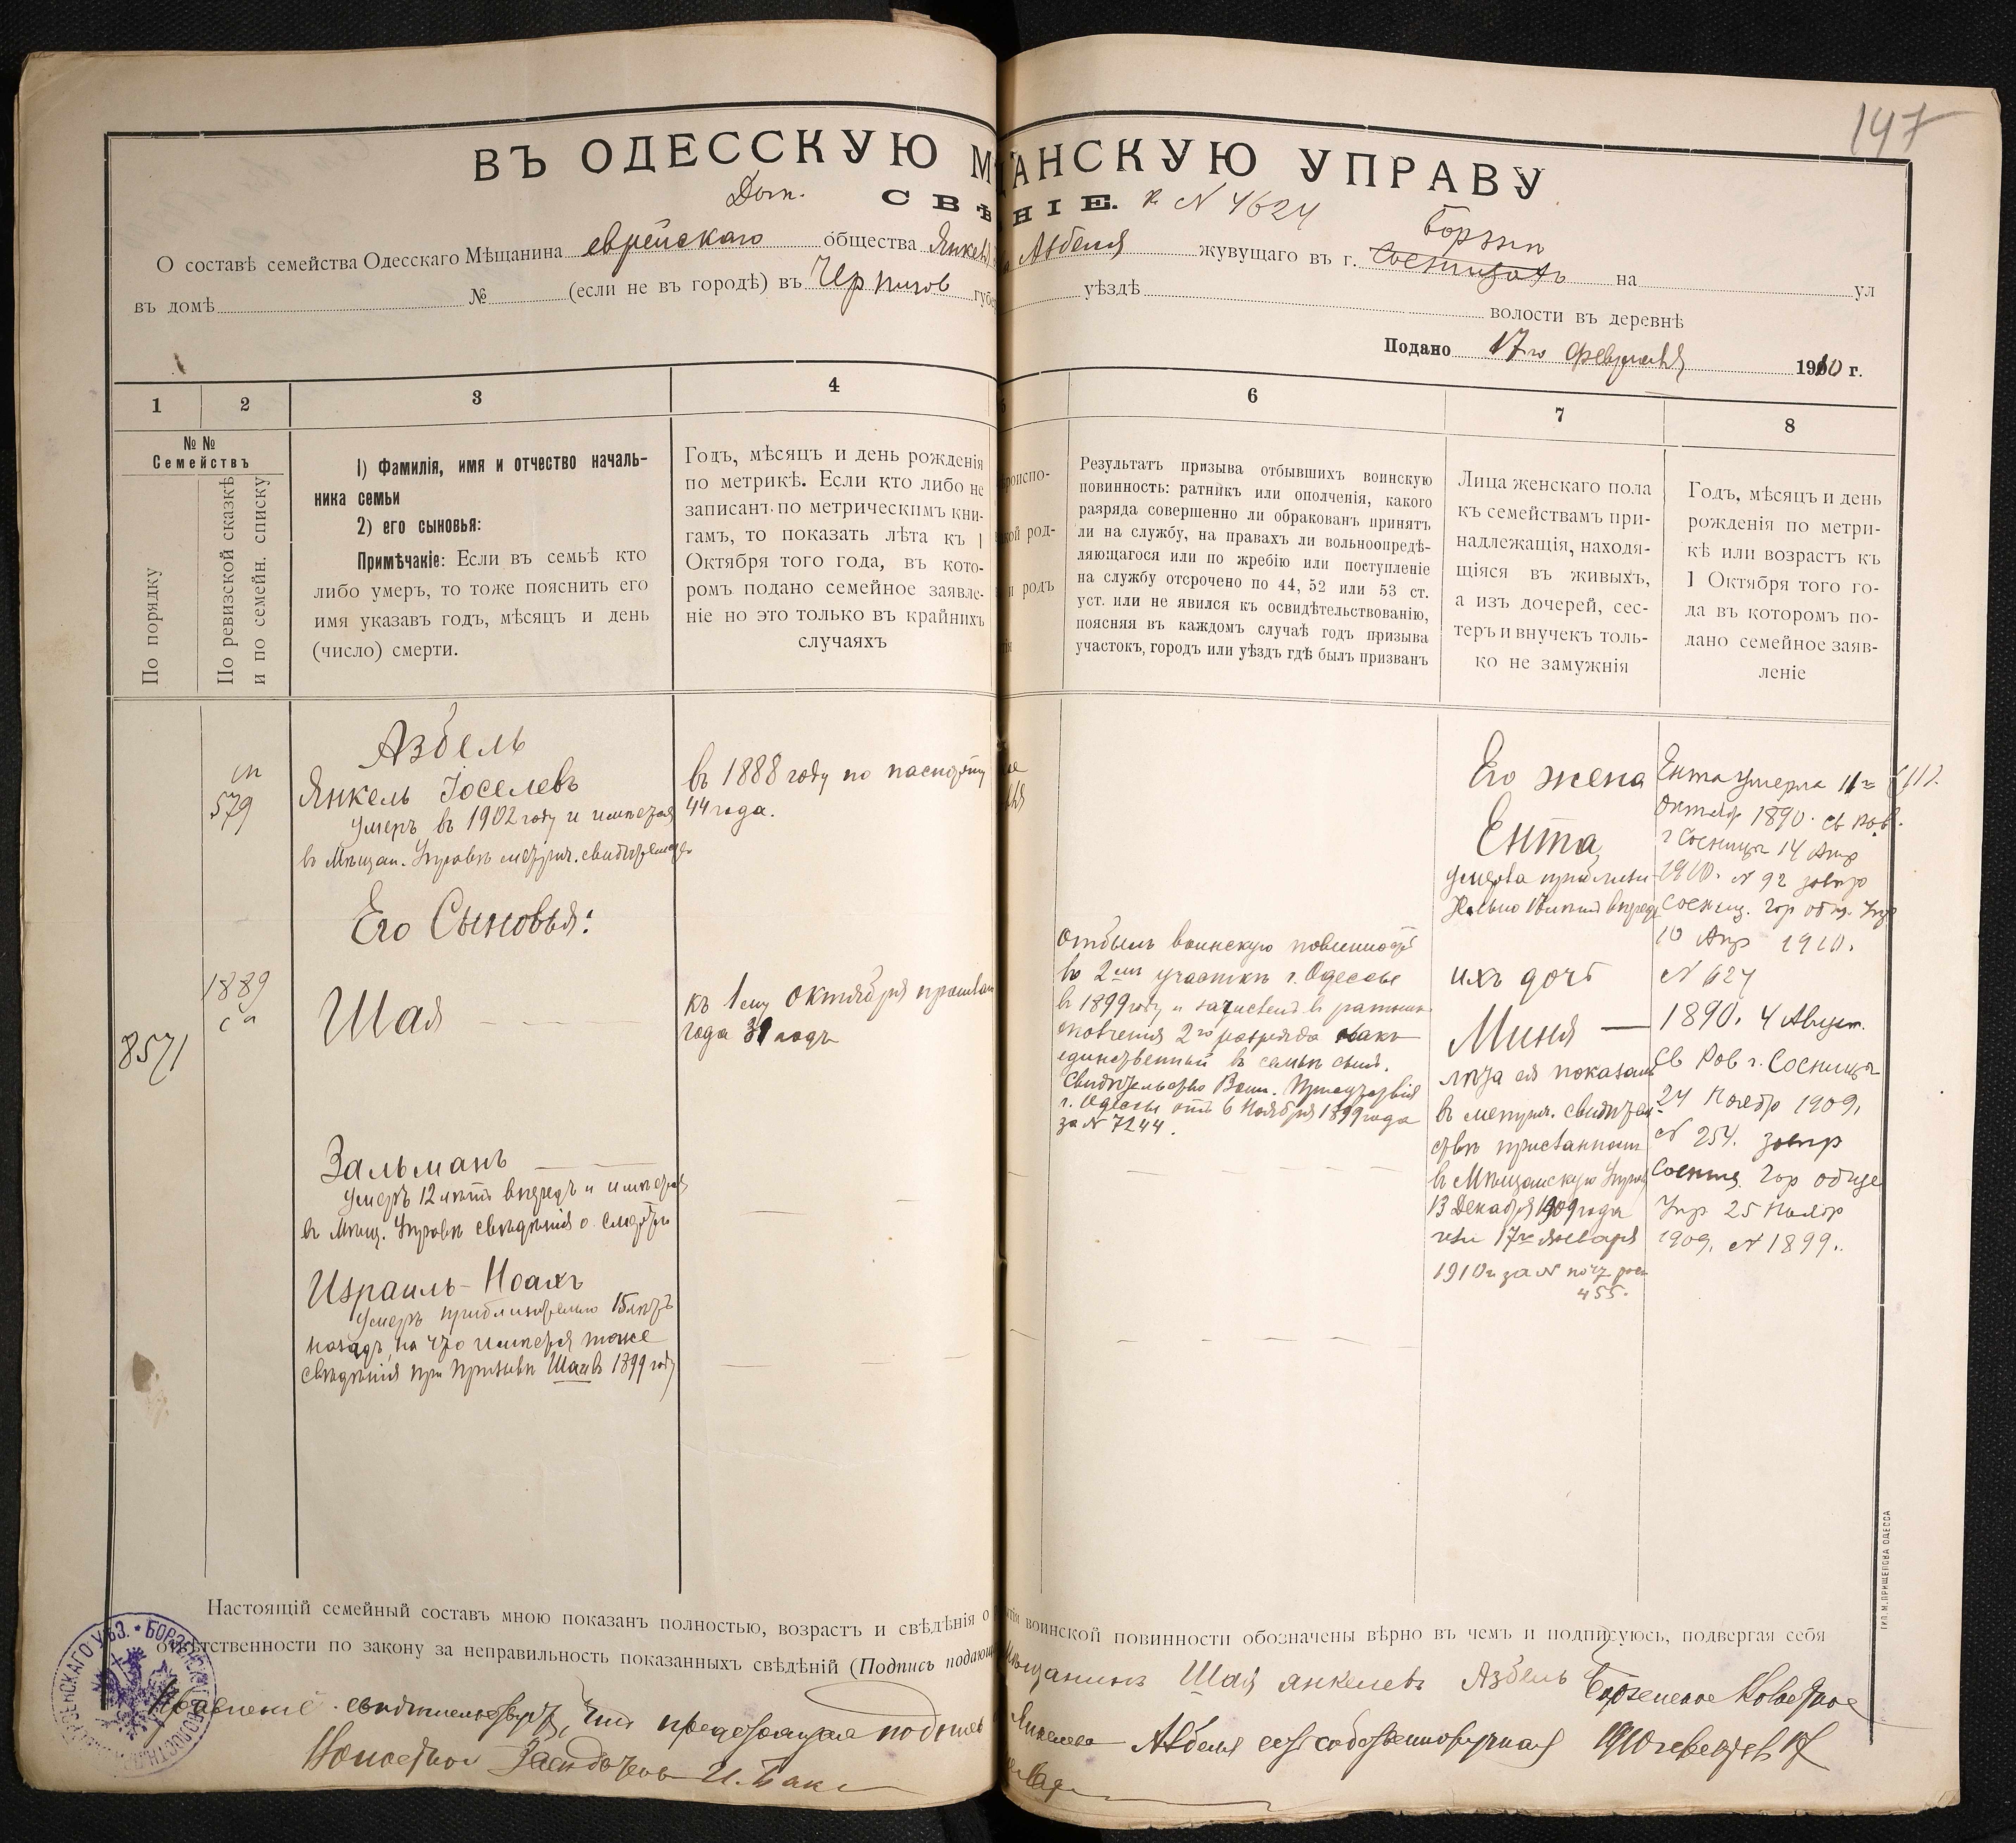 147
ВЪ ОДЕССКУЮ М АНСКУЮ УПРАВУ
Доп. СВѢ НІЕ. к № 4624
Борзны
О составѣ семейства Одесскаго Мѣщанина еврейскаго общества Янкел Азбеля жувущаго въ г. Сосницахъ на ул
въ домѣ № (если не въ городѣ) въ Чернигов губе уѣздѣ волости въ деревнѣ
Подано 17го февраля 1910 г.
1 2 3 4 6 7 8
№№
Семействъ
По порядку
По ревизской сказкѣ
и по семейн. списку
1) Фамилія, имя и отчество началь-
ника семьи
2) его сыновья:
Примѣчакіе: Если въ семьѣ кто
либо умеръ, то тоже пояснить его
имя указавъ годъ, мѣсяцъ и день
(число) смерти.
Годъ, мѣсяцъ и день рожденія
по метрикѣ. Если кто либо не
записанъ по метрическимъ кни-
гамъ, то показать лѣта къ 1
Октября того года, въ кото-
ромъ подано семейное заявле-
ніе но это только въ крайнихъ
случаяхъ
роиспо-
кой род-
и родъ
Результатъ призыва отбывшихъ воинскую
повинность: ратникъ или ополченія, какого
разряда совершенно ли обракованъ принятъ
ли на службу, на правахъ ли вольноопредѣ-
ляющагося или по жребію или поступленіе
на службу отсрочено по 44, 52 или 53 ст.
уст. или не явился къ освидѣтельствованію,
поясняя въ каждомъ случаѣ годъ призыва
участокъ, городъ или уѣздъ гдѣ былъ призванъ
Лица женскаго пола
къ семействамъ при-
надлежащія, находя-
щіяся въ живыхъ,
а изъ дочерей, сес-
теръ и внучекъ толь-
ко не замужнія
Годъ, мѣсяцъ и день
рожденія по метри-
кѣ или возрастъ къ
1 Октября того го-
да въ которомъ по-
дано семейное заяв-
леніе
8571
сп
579
1889
са
Азбель
Янкель Іоселевъ
умеръ въ 1902 году и имѣется
въ Мѣщан. Управѣ метрич. свидѣтельство
Его Сыновья:
Шая
Зальманъ
умеръ 12 лѣтъ впередъ и имѣется
въ Мѣщ. Управѣ свѣдѣнія о смерти
Израиль-Ноахъ
умеръ приблизительно 15 лѣтъ
назадъ, на что имѣется тоже
свѣдѣнія при призывѣ Шаи въ 1899 году
въ 1888 году по паспорту
44 года.
къ 1му октября прошлаго
года 31 годъ
Отбылъ воинскую повинность
въ 2мъ участкѣ г. Одессы
въ 1899 году и зачисленъ въ ратники
ополченія 2го разряда какъ
единственный въ семьѣ сынъ.
Свидѣтельство Воин. Присутствія
г. Одессы отъ 6 Ноября 1899 года
за № 7244.
Его жена
Ента
умерла приблизи-
тельно 18 лѣтъ впередъ
ихъ дочь
Миня
лѣта ея показаны
въ метрич. свидѣтель-
ствѣ присланномъ
въ Мѣщанскую Управу
13 Декабря 1909 года
или 17го января
1910 и за № почт. рос.
455.
Ента умерла 11го
октябр 1890. Св Ров.
г Сосницы 14 Апр
1910. № 92 завѣр
Сосниц. Гор общ. Упр
10 Апр 1910.
№ 624
1890. 4 Август.
Св Ров г. Сосницы
24 Ноябр 1909.
№ 254. завѣр
Сосниц Гор обще
Упр 25 Ноябр
1909. № 1899.
Настоящій семейный составъ мною показанъ полностью, возрастъ и свѣдѣнія о воинской повинности обозначены вѣрно въ чемъ и подписуюсь, подвергая себя
отвѣтственности по закону за неправильность показанныхъ свѣдѣній (Подпись подающ Мѣщанинъ Шая Янкелевъ Азбель Борзенское Волостное
Правленіе свидѣтельствуетъ, что предстоящая подпись Янкелева Азбеля есть собственноручная 1910 г февраля 17
Волостной
ТИП. М. ПРИЩЕПОВА ОДЕССА